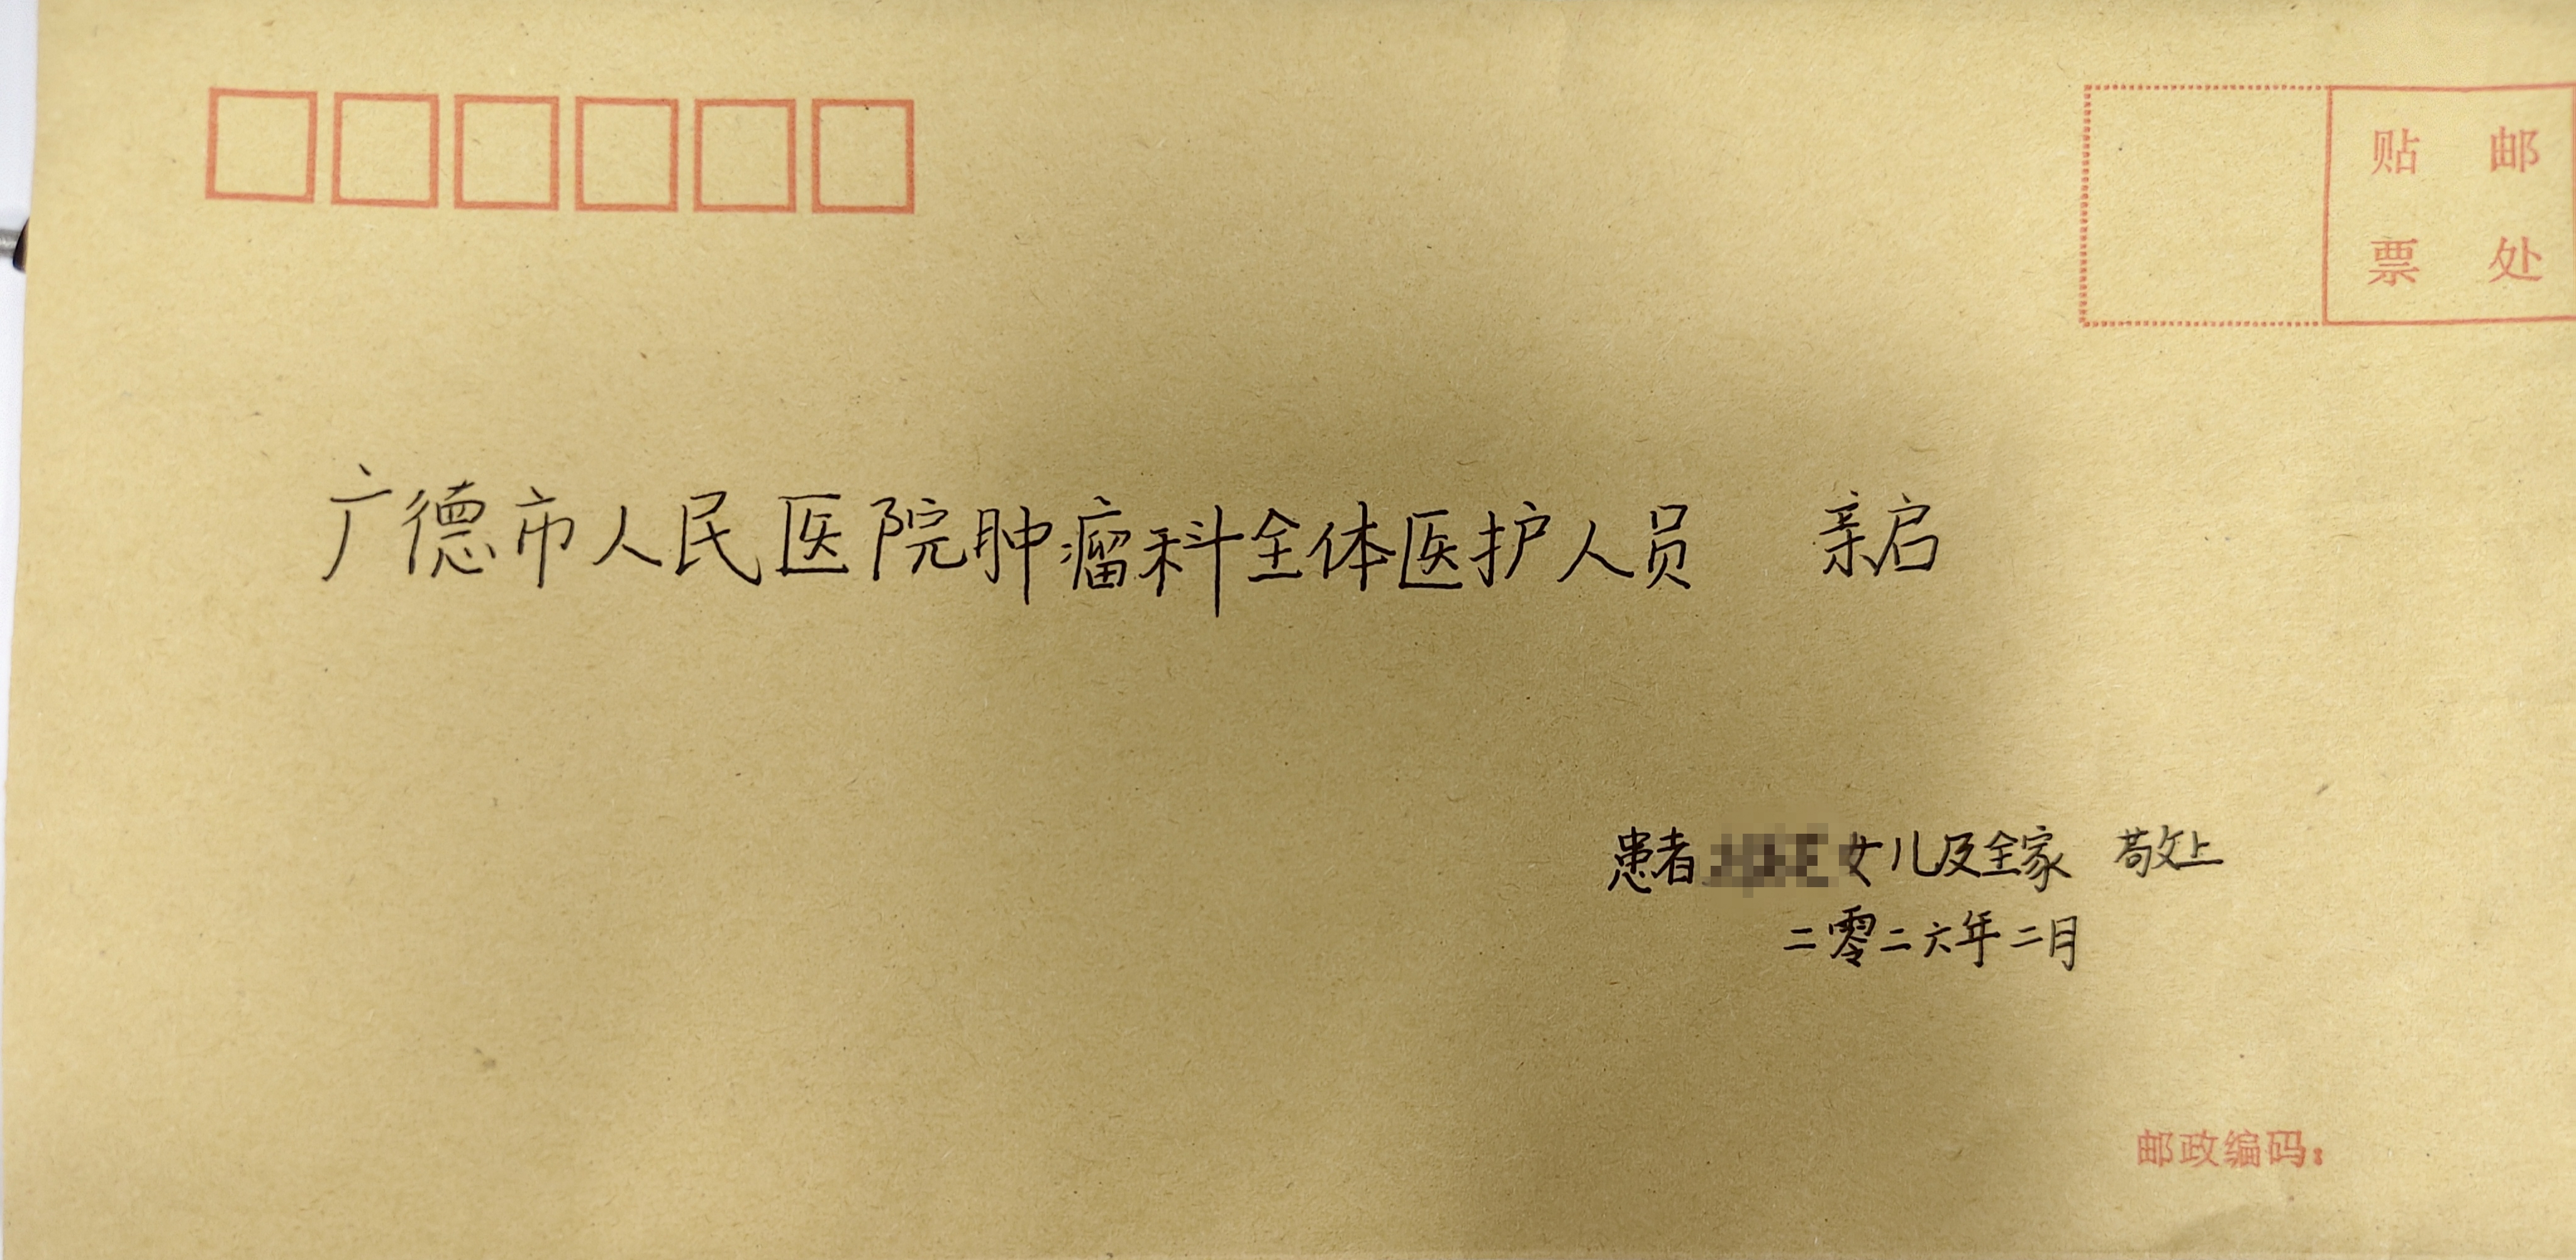 贴 邮
票 处
广德市人民医院肿瘤科全体医护人员 亲启
患者 女儿及全家 敬上
二零二六年二月
邮政编码：